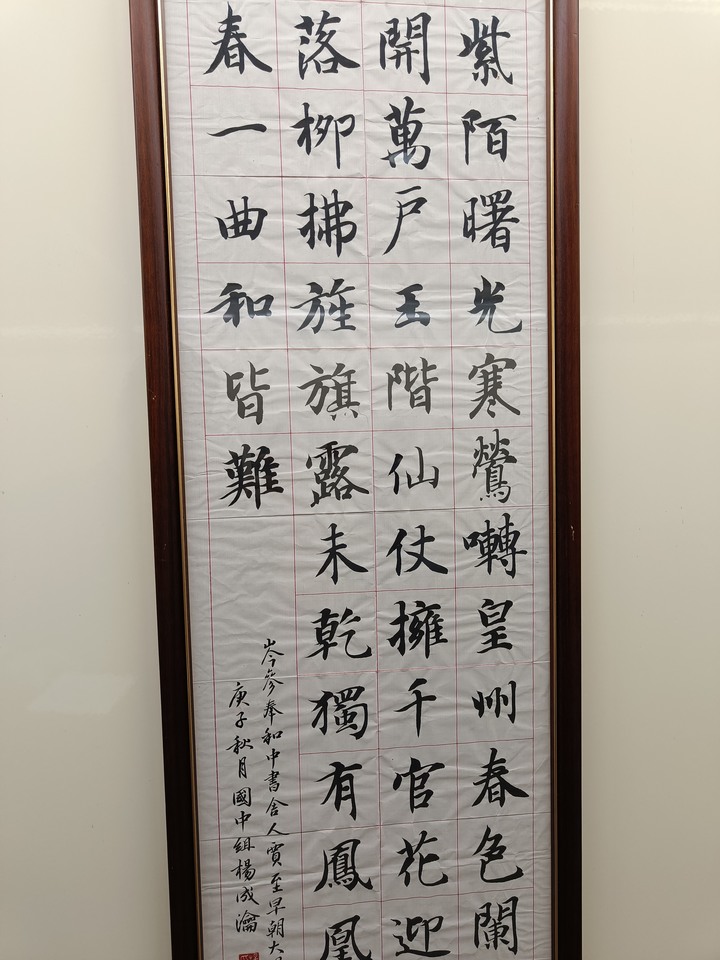 紫陌曙光寒鶯囀皇州春色闌
開萬戶玉階仙仗擁千官花迎
落柳拂旌旗露未乾獨有鳳凰
春一曲和皆難
岑參奉和中書舍人賈至早朝大
庚子秋月國中組楊成瀹